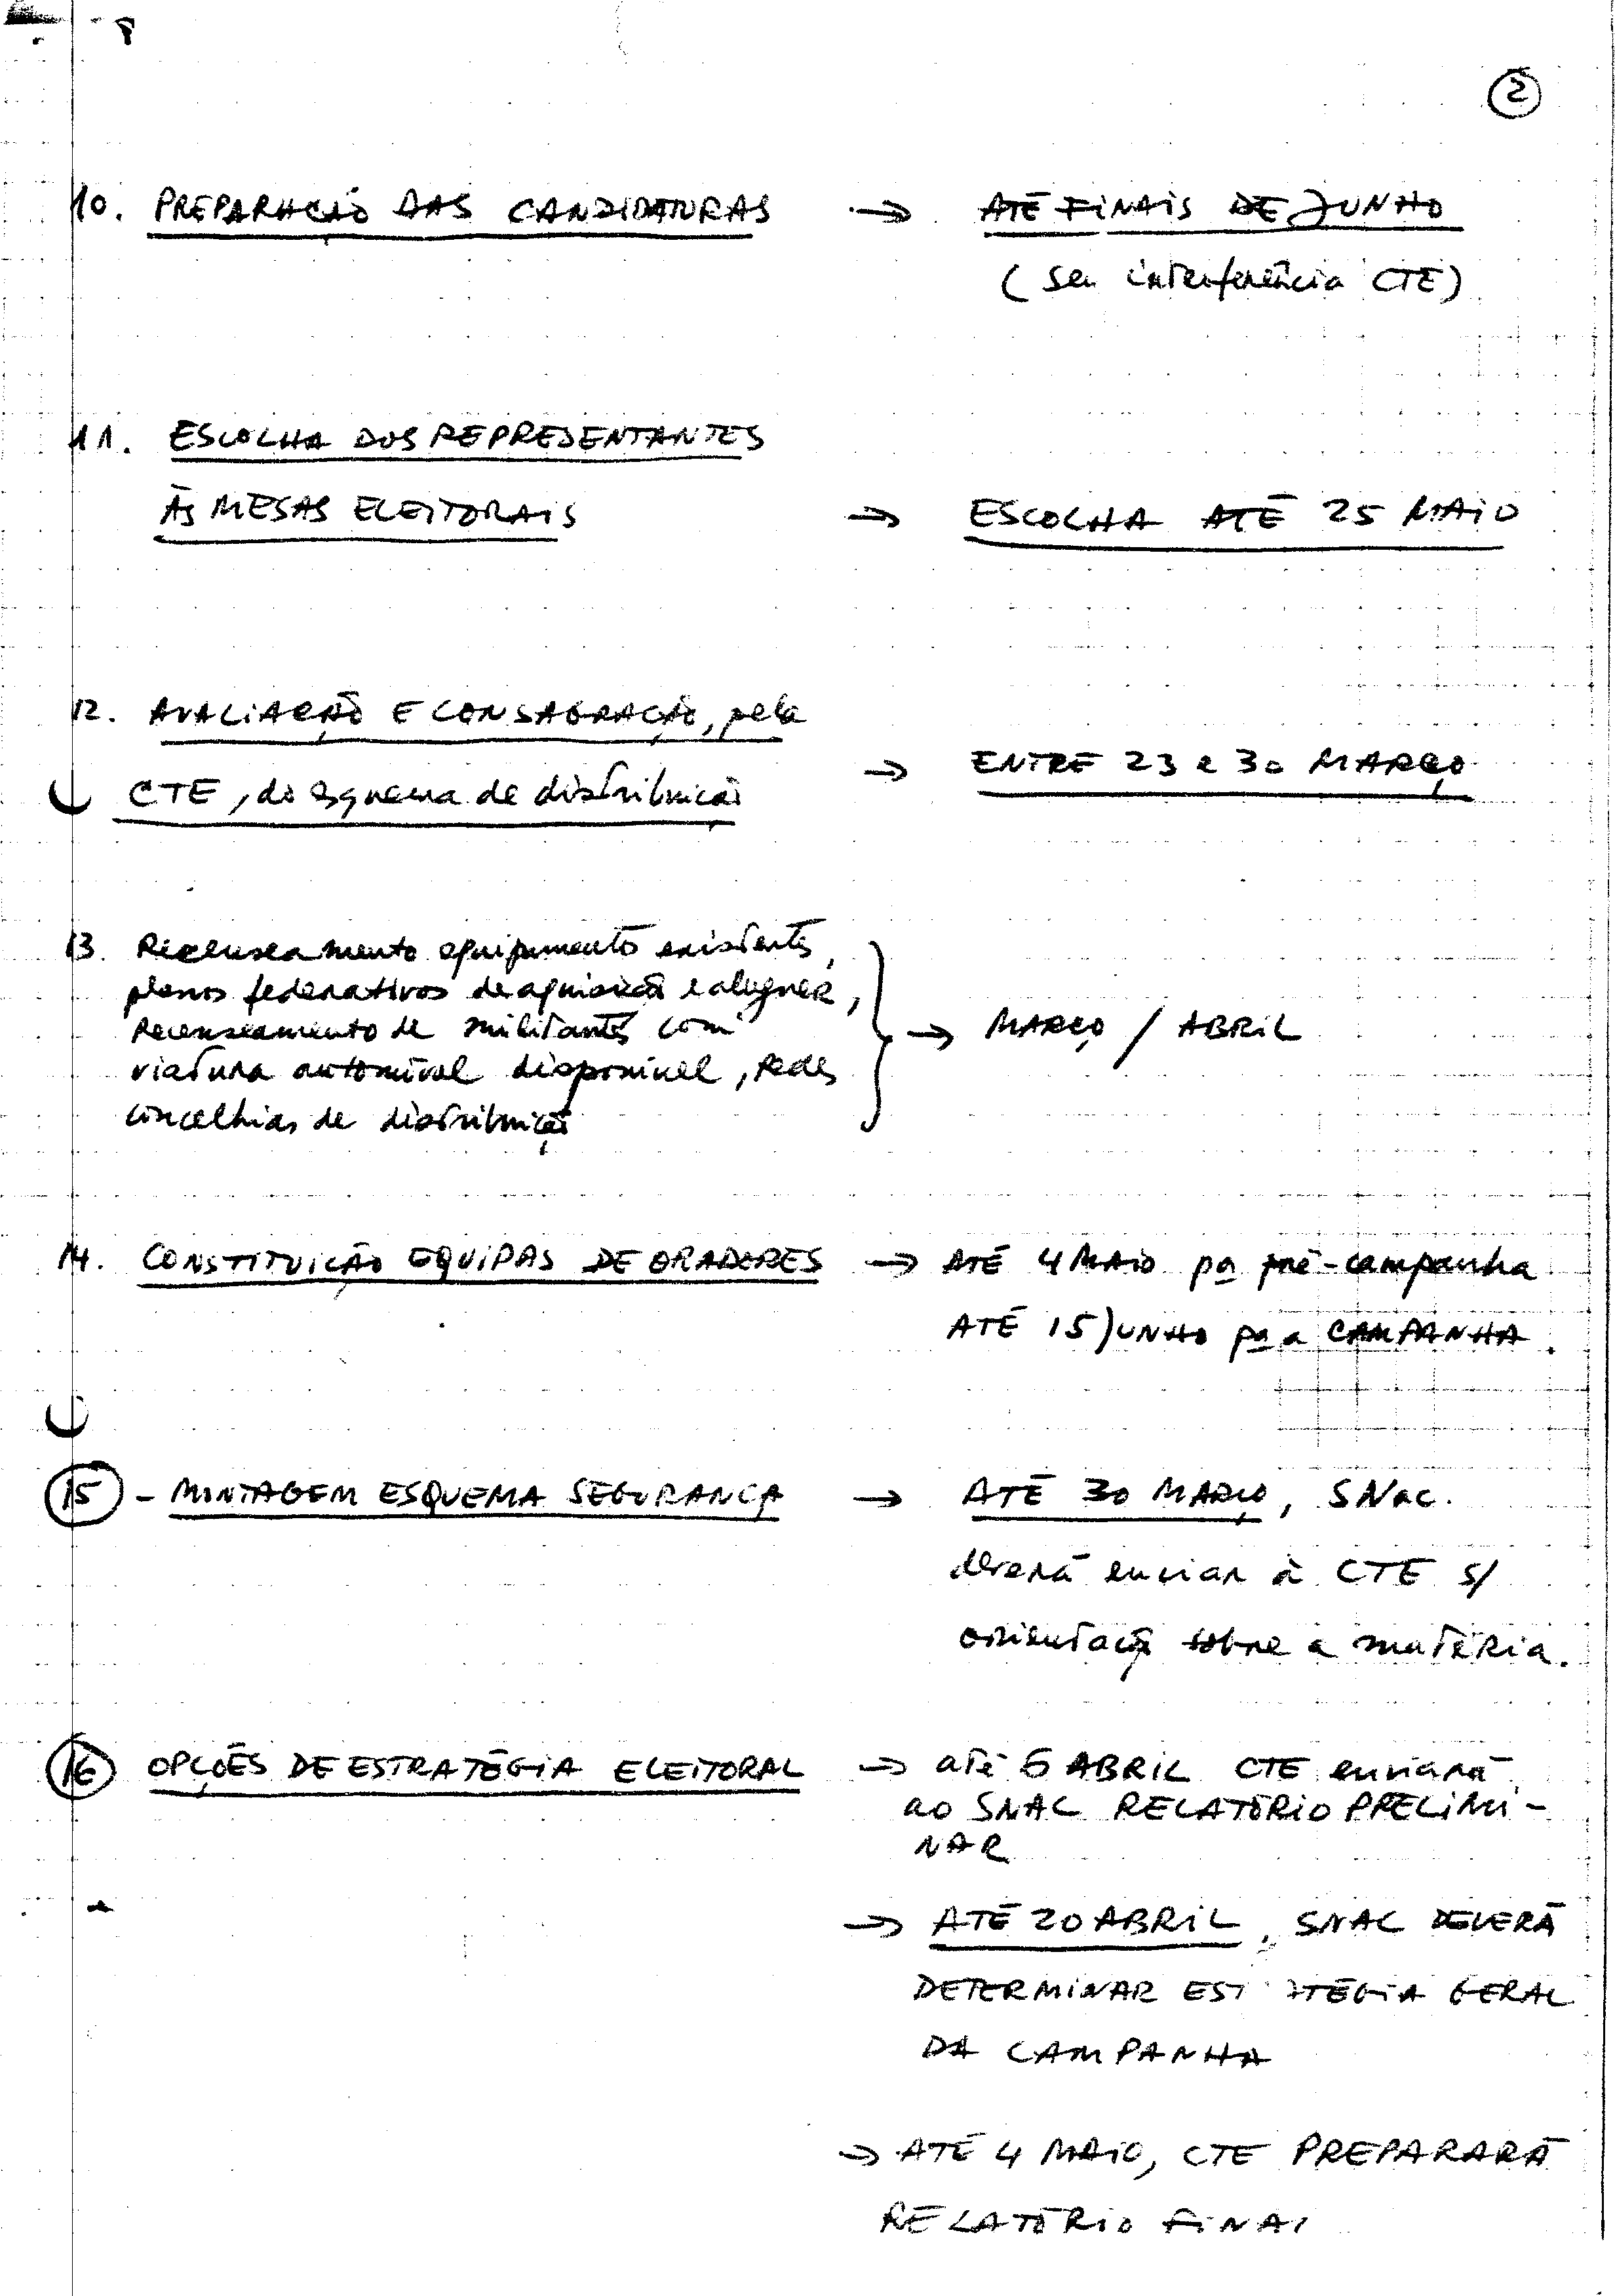 2
10. PREPARAÇÃO DAS CANDIDATURAS → ATÉ FINAIS DE JUNHO
(sem interferência CTE)
11. ESCOLHA DOS REPRESENTANTES
ÀS MESAS ELEITORAIS → ESCOLHA ATÉ 25 MAIO
12. AVALIAÇÃO E CONSAGRAÇÃO, pela
CTE, do esquema de distribuição → ENTRE 23 e 30 MARÇO
13. Recenseamento equipamento existente,
planos federativos de aquisição e aluguer,
Recenseamento de militantes com
viatura automóvel disponível, redes
concelhias de distribuição → MARÇO / ABRIL
14. CONSTITUIÇÃO EQUIPAS DE ORADORES → ATÉ 4 MAIO pa pré-campanha
ATÉ 15 JUNHO pa a CAMPANHA.
15 - MONTAGEM ESQUEMA SEGURANÇA → ATÉ 30 MARÇO, SNac.
deverá enviar à CTE s/
orientação sobre a matéria.
16 OPÇÕES DE ESTRATÉGIA ELEITORAL → até 6 ABRIL CTE enviará
ao SNAC RELATÓRIO PRELIMI-
NAR
→ ATÉ 20 ABRIL, SNAC DEVERÁ
DETERMINAR ESTRATÉGIA GERAL
DA CAMPANHA
→ ATÉ 4 MAIO, CTE PREPARARÁ
RELATÓRIO FINAL